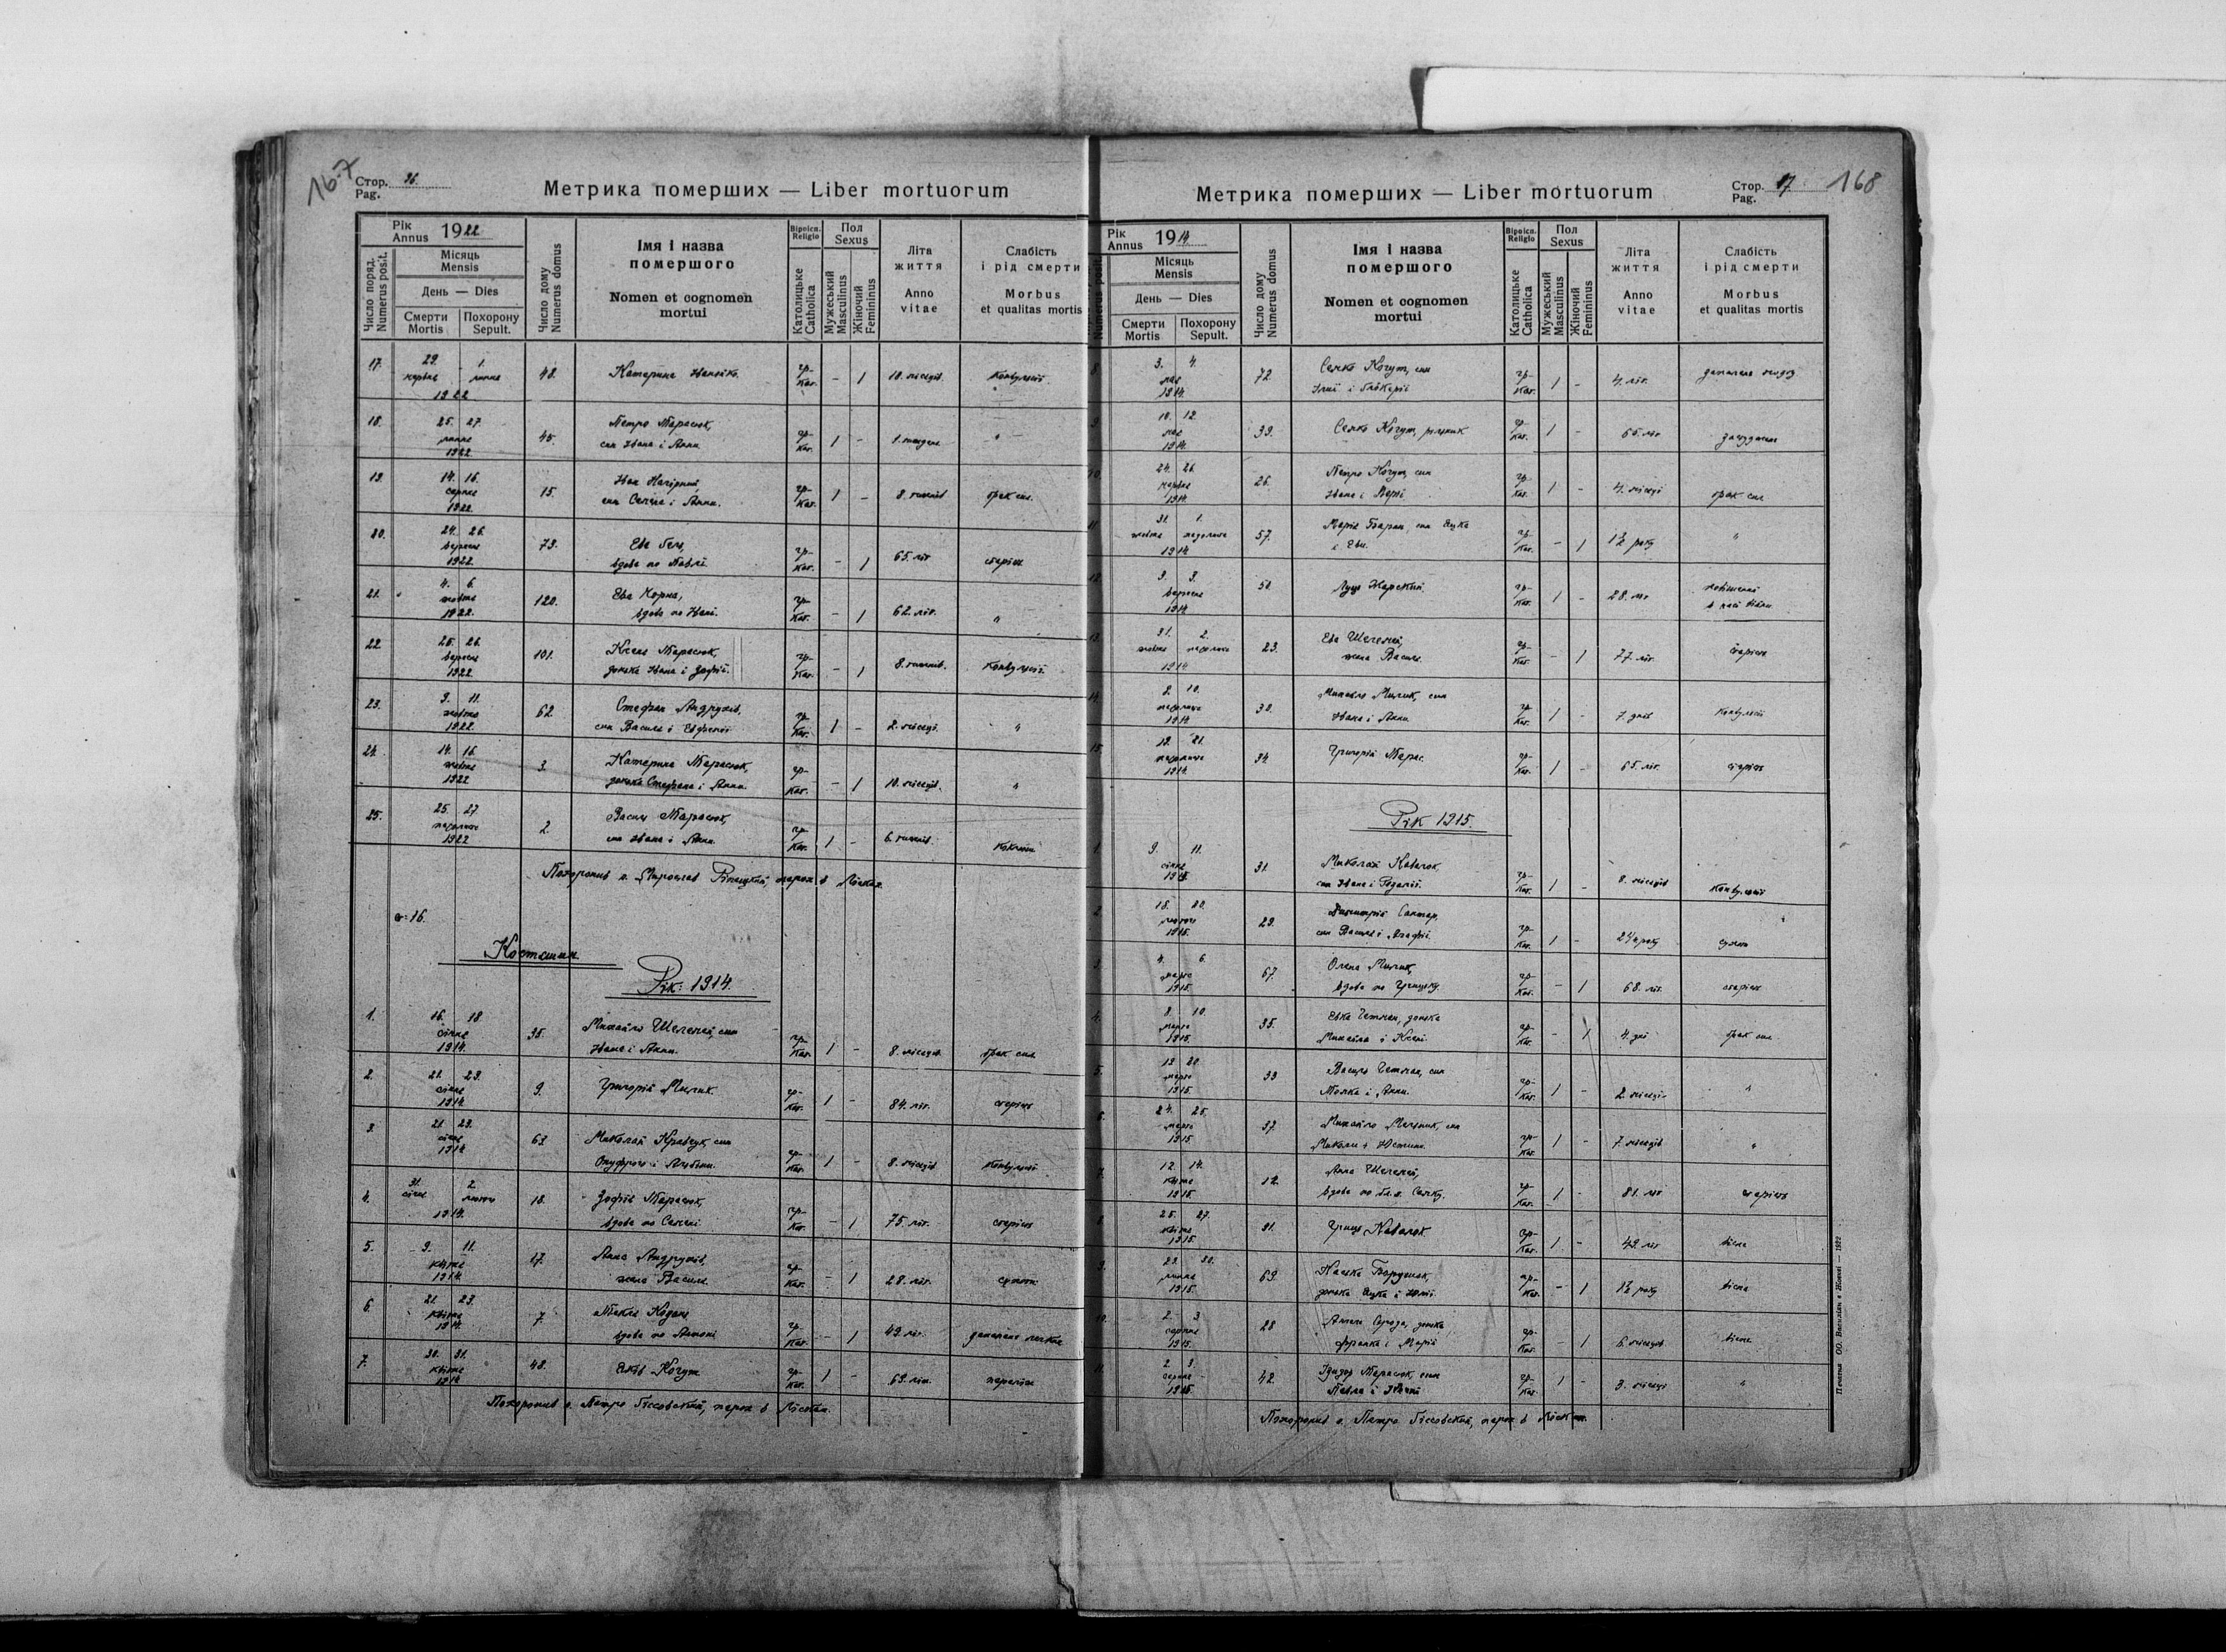 167
Стор. 26.
Pag.
Метрика померших — Liber mortuorum
Рік
Annus 1922
Число поряд.
Numerus posit.
Місяць
Mensis
День — Dies
Смерти
Mortis
Похорону
Sepult.
Число дому
Numerus domus
Імя і назва
помершого
Nomen et cognomen
mortui
Віроісп.
Religio
Католицьке
Catholica
Пол
Sexus
Мужеський
Masculinus
Жіночий
Femininus
Літа
життя
Anno
vitae
Слабість
і рід смерти
Morbus
et qualitas mortis
17. 29 1.
червня липня 48. Катерина гр- - 1 10. місяців конвульсії
1922 кат.
18. 25. 27. Петро Марасюк,
липня 45. син Івана і Анни гр- 1 - "
1922 кат.
19. 14. 16. Іван
серпня 15. син Семена і Анни. гр- 1 - 8. брак сил.
1922 кат.
20. 24. 26. Ева
вересня 73. вдова по Павлі гр- - 1 65. літ старість
1922 кат.
21. 4. 6. Ева Корна,
жовтня 120. вдова по Івані. гр- - 1 62. літ. "
1922. кат.
22. 25. 26. Ксеня Марасюк,
вересня 101. донька Івана і Зофії. гр- - 1 8. конвульсії.
1922 кат.
23. 9. 11. Стефан Андрухів,
жовтня 62. син Василя і Евфемії гр- 1 - 2. місяці. "
1922. кат.
24. 14. 16. Катерина Марасюк,
жовтня 3. донька Стефана і Анни гр- - 1 10. місяців. "
1922 кат.
25. 25. 27 Василь Марасюк,
падолиста 2. син Івана і Анни гр- 1 - 6. коклюш
1922 кат.
Похоронив о. Мирослав Ріпецкий, парох в Лісках.
16.
Костяшин
Рік: 1914.
1. 16. 18. Михайло Шелемей, син
січня 35. Івана і Анни. гр- 1 - 8. місяців брак сил
1914. кат.
2. 21. 23. Григорій Милик.
січня 9. гр- 1 - 84. літ. старість
1914 кат.
3. 21. 23. Миколай Кравчук, син
січня 63 Онуфрого і гр- 1 - 8. місяців конвульсії
1914 кат.
4. 31. 2. Зофія Марасюк,
січня лютого 18. вдова по Семені гр- - 1 75. літ. старість
1914. кат.
5. 9. 11. Анна Андрухів,
квітня 17. жена Василя гр- - 1 28. літ. сухоти
1914 кат.
6. 21. 23. Текля
квітня 7. вдова по Антоні гр- - 1 49. літ. запалення
1914. кат.
7. 30. 31. Яків Когут
квітня 48. гр- 1 - 69. літ. параліж
1914 кат.
Похоронив о. Петро Гіссовский, парох в Лісках.
Стор. 27 168
Pag.
Метрика померших — Liber mortuorum
Рік
Annus 1914
Numerus posit.
Місяць
Mensis
День — Dies
Смерти
Mortis
Похорону
Sepult.
Число дому
Numerus domus
Імя і назва
помершого
Nomen et cognomen
mortui
Віроісп.
Religio
Католицьке
Catholica
Пол
Sexus
Мужеський
Masculinus
Жіночий
Femininus
Літа
життя
Anno
vitae
Слабість
і рід смерти
Morbus
et qualitas mortis
8 3. 4. Семко Когут, син
мая 72. Ілиї і гр- 1 - 4. літ.
1914. кат.
9 10. 12 Семко Когут, рільник
мая 39. гр- 1 - 65. літ
1914. кат.
10. 24. 26. Петро Когут, син
червня 26. Івана і Марії гр- 1 - 4. місяці брак сил
1914. кат.
11 31. 1. Марія Баран,
жовтня падолиста 57. і Еви. гр- - 1 1½ року "
1914 кат.
12. 3. 3.
вересня 50. гр- 1 - 28. літ повішений
1914 кат. в часі війни
13. 31. 2. Ева Шелемей,
жовтня падолиста 23. жена Василя гр- - 1 77 літ. старість
1914 кат.
14. 8. 10. Михайло Милик, син
падолиста 30. Івана і Анни гр- 1 - 7. днів конвульсії
1914 кат.
15. 19. 21. Григорій Марас.
падолиста 34 гр- 1 - 65. літ. старість
1914. кат.
Рік 1915.
1. 9. 11. Миколай Ковалюк
січня 31. син Івана і Розалії. гр- 1 - 8. місяців конвульсії
1915. кат.
2. 18. 20. Димитрій
лютого 29. син Василя і гр- 1 - 2¼ року
1915. кат.
3. 4. 6. Олена Милик,
марта 67. вдова по Грицьку. гр- - 1 68. літ. старість
1915. кат.
4. 8. 10. Евка Гетман, донька
марта 35. Михайла і Ксені гр- - 1 4. дні брак сил
1915. кат.
5. 19 20. Василь Гетман, син
марта 33 і Анни. гр- 1 - 2. місяці "
1915. кат.
6. 24. 25. Михайло Мельник, син
марта 37. Миколи і Юстини. гр- 1 - 7. місяців "
1915 кат.
7. 12. 14. Анна Шелемей,
квітня 12. вдова по Семку. гр- 1 - 81. літ старість
1915. кат.
8. 25. 27. Гриць Ковалюк
квітня 31. гр- 1 - 49. літ віспа
1915. кат.
9. 29. 30.
липня 69. донька Яцка і Юлії. гр- - 1 1½ року віспа
1915. кат.
10. 2. 3
серпня 28 Франка і Марії гр- - 1 6. місяців віспа
1915. кат.
11. 2. 3. Ізидор Марасюк, син
серпня 42. Павла і гр- 1 - 3. місяці "
1915. кат.
Похоронив о. Петро Гіссовский, парох в Лісках.
Печатня ОО. Василіян в Жовкві — 1922